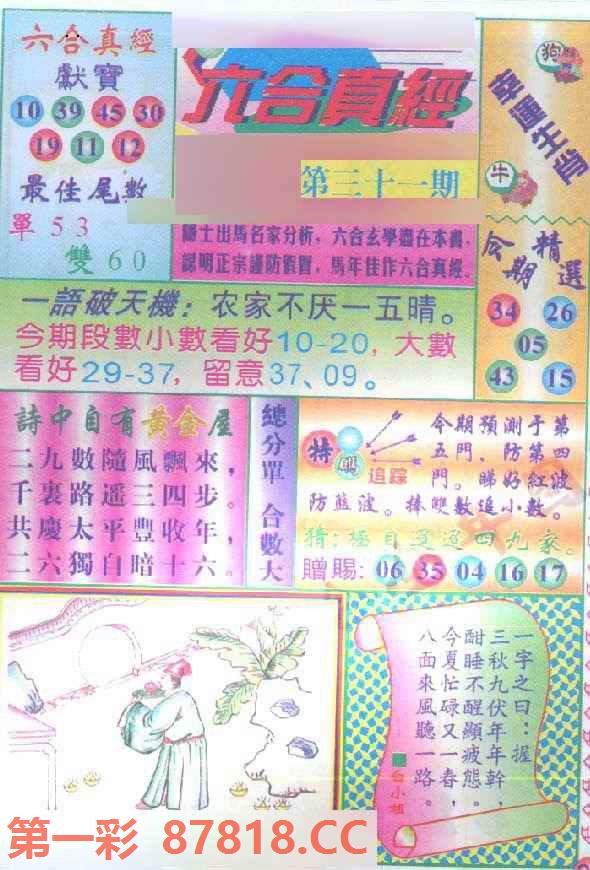 六合真經
獻寶
10 39 45 30
19 11 12
最佳尾數
單 5 3
雙 6 0
六合真經
第三十一期
隱士出馬名家分析，六合玄學盡在本書，
認明正宗謹防假冒，馬年佳作六合真經。
幸運生肖
狗
牛
今期精選
34 26
05
43 15
一語破天機：农家不厌一五晴。
今期段數小數看好10-20，大數
看好29-37，留意37、09。
詩中自有黃金屋
二九數隨風飄來，
千裏路遥三四步。
共慶太平豐收年，
二六獨自暗十六。
總分單 合數大
特
追踪
今期預測于第
五門、防第四
門。睇好紅波
防藍波。捧雙數追小數。
猜：極目遥遥四九家。
贈賜：06 35 04 16 17
一字之曰：握
三秋九伏年年幹，
酣睡不醒顯疲態。
今夏忙碌又一春，
八面來風聽一路。
白小姐
第一彩 87818.CC